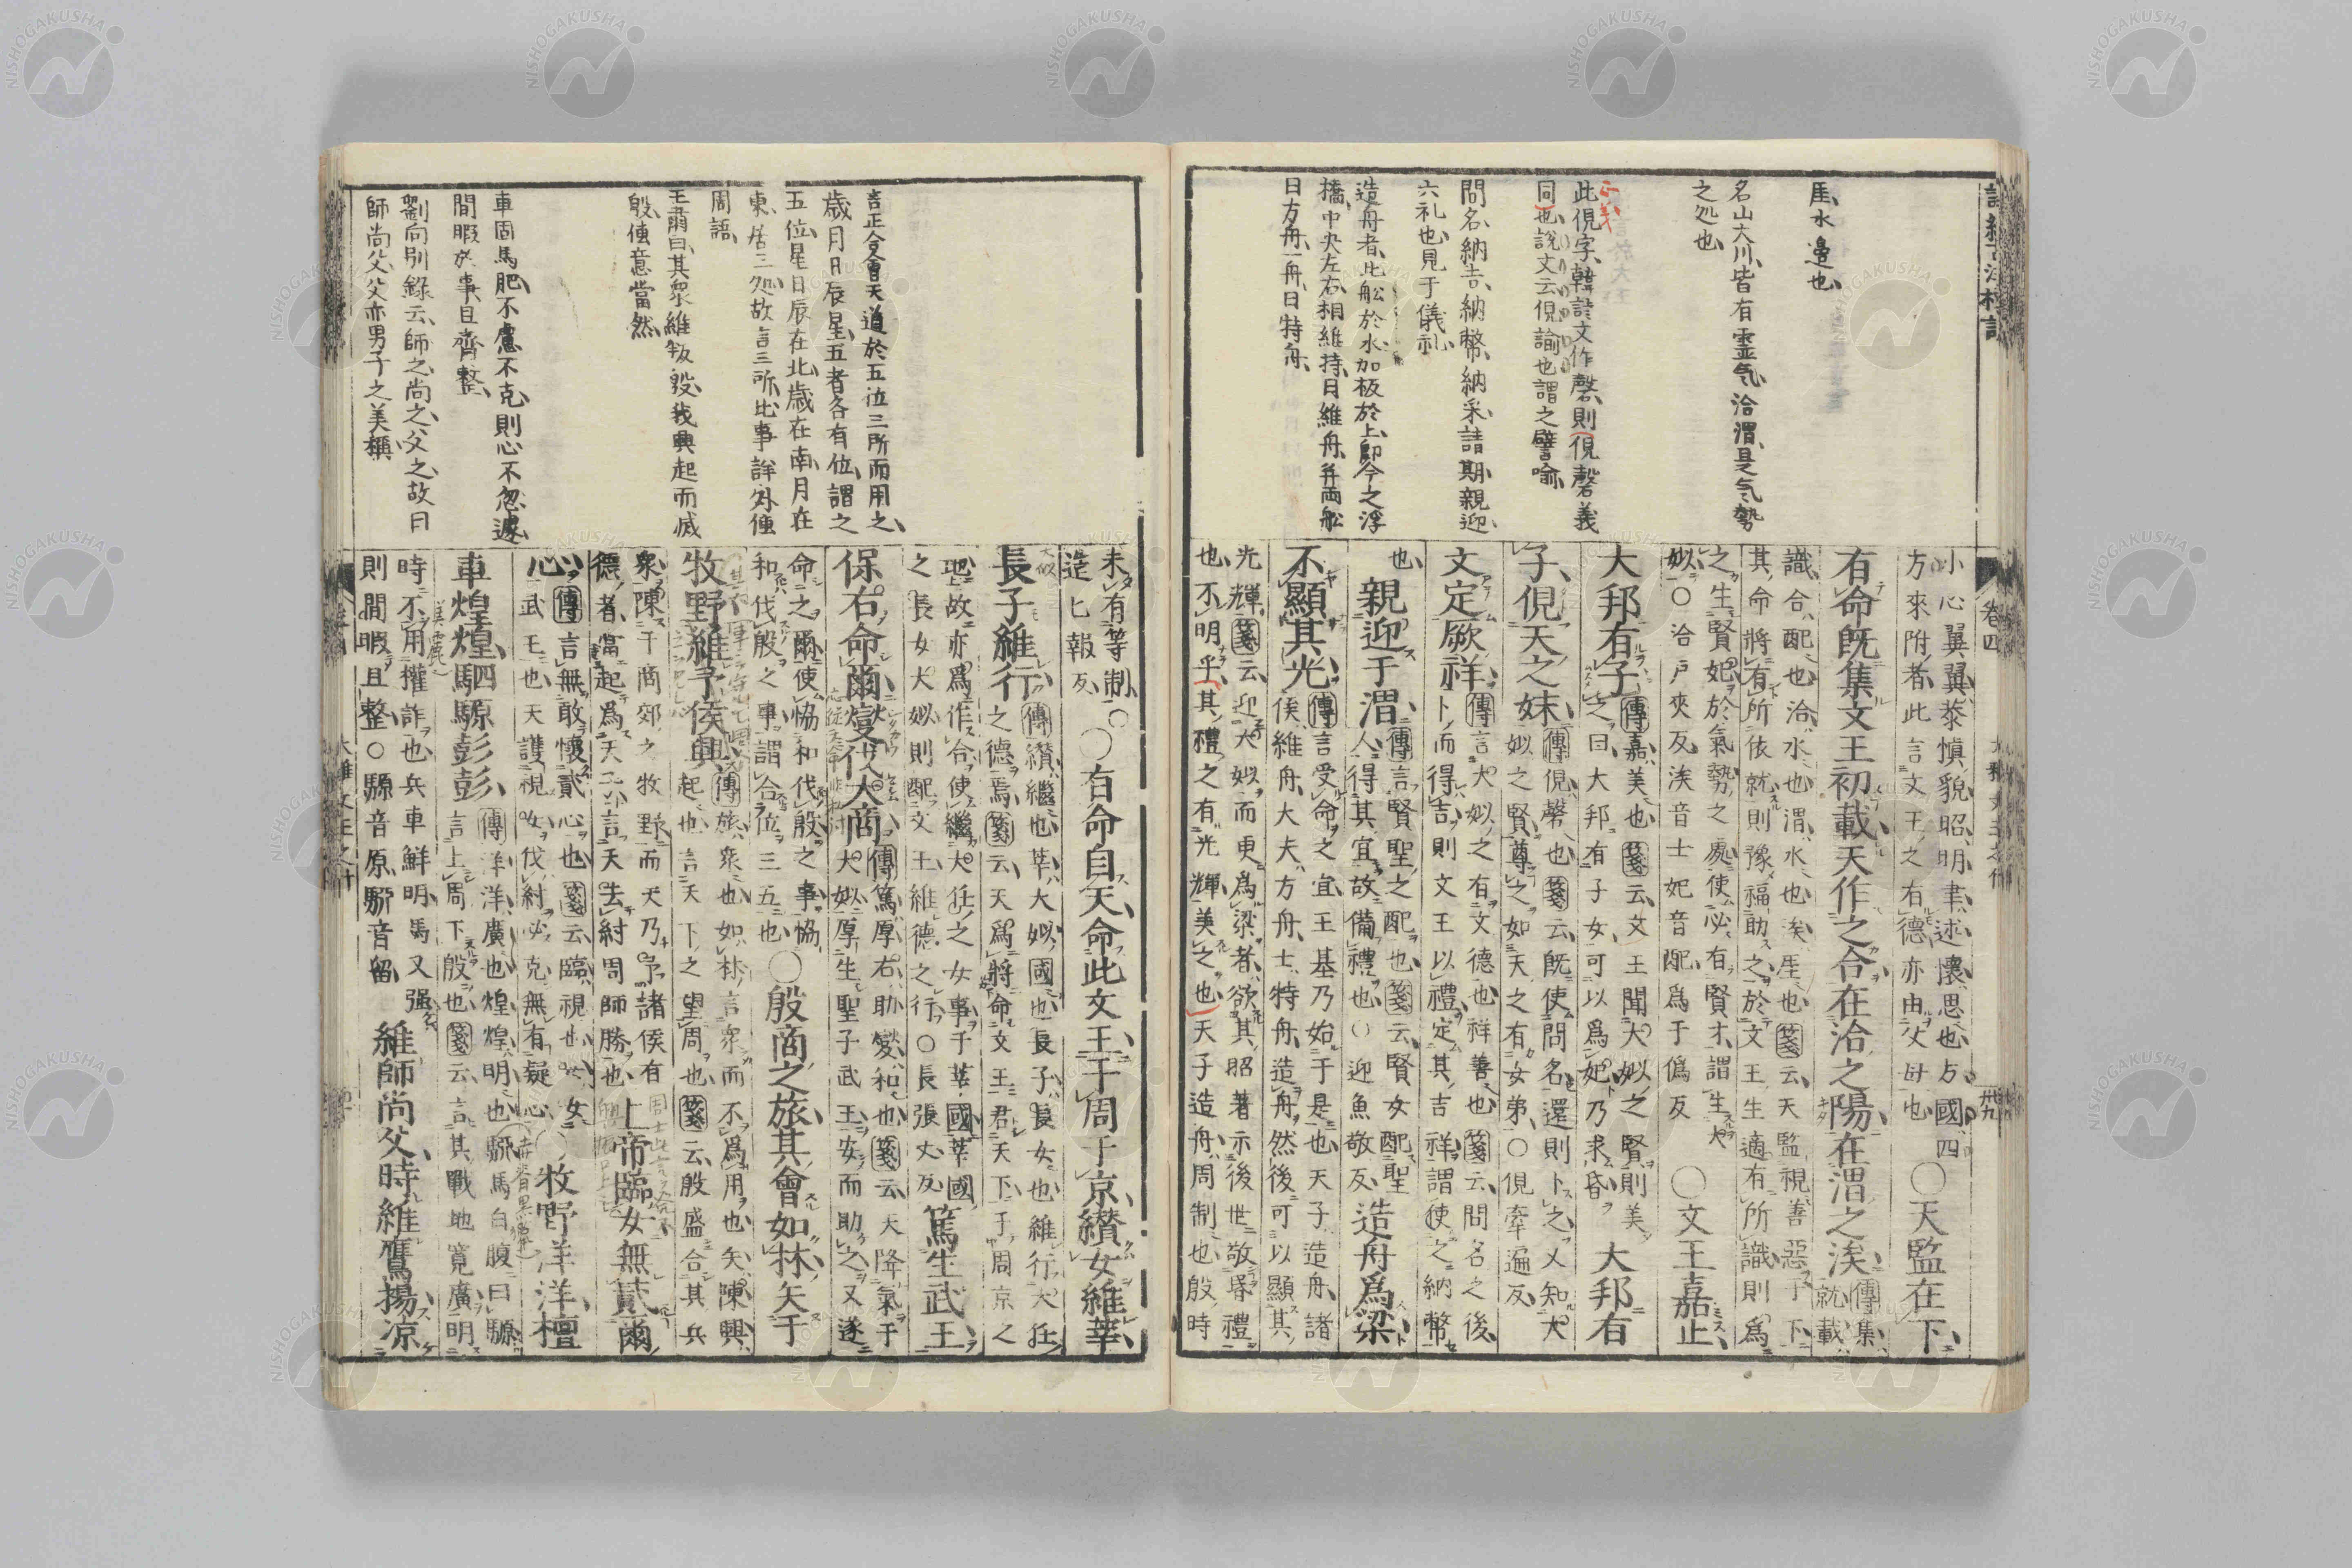 詩經古注標註
厓水邊也
名山大川皆有靈气洽渭是气勢
之処也
正義
此俔字韓詩文作磬則俔磬義
同也說文云俔諭也謂之譬喻
問名納吉納幣納采請期親迎
六礼也見于儀礼
造舟者比舩於水加板於上即今之浮
橋中央左右相維持曰維舟并兩舩
曰方舟一舟曰特舟
卷四
大雅文王之什
卅九
小心翼翼恭愼貌昭明聿述懷思也方國四
方來附者此言文王之有德亦由父母也
○天監在下
有命既集文王初載天作之合在洽之陽在渭之涘
傳集
就載
識合配也洽水也渭水也涘厓也箋云天監視善惡于下
其命將有所依就則豫福助之於文王生適有所識則爲
之生賢妃於氣勢之處使必有賢才謂生大
姒○洽戶夾反涘音士妃音配爲于僞反
○文王嘉止
大邦有子
傳嘉美也箋云文王聞大姒之賢則美
之曰大邦有子女可以爲妃乃求昏
大邦有
子俔天之妹
傳俔磬也箋云既使問名還則卜之又知大
姒之賢尊之如天之有女弟○俔牽遍反
文定厥祥
傳言大姒之有文德也祥善也箋云問名之後
卜而得吉則文王以禮定其吉祥謂使之納幣
也
親迎于渭
傳言賢聖之配也箋云賢女配聖
人得其宜故備禮也○迎魚敬反
造舟爲梁
不顯其光
傳言受命之宜王基乃始于是也天子造舟諸
侯維舟大夫方舟士特舟造舟然後可以顯其
光輝箋云迎大姒而更爲梁者欲其昭著示後世敬昏禮
也不明乎其禮之有光輝美之也天子造舟周制也殷時
吉正合會天道於五位三所而用之
歲月日辰星五者各有位謂之
五位星日辰在北歲在南月在
東居三処故言三所比事詳外傳
周語
王肅曰其衆維叛殷我興起而滅
殷傳意當然
車固馬肥不慮不克則心不忽遽
間暇於事且齊整
劉向別錄云師之尚之父之故曰
師尚父父亦男子之美稱
未有等制○
造七報反
○有命自天命此文王于周于京纘女維莘
長子維行
傳纘繼也莘大姒國也長子長女也維行大任
之德焉箋云天爲將命文王君天下于周京之
地故亦爲作合使繼大任之女事于莘國莘國
之長女大姒則配文王維德之行○長張丈反
篤生武王
保右命爾燮伐大商
傳篤厚右助燮和也箋云天降氣于
大姒厚生聖子武王安而助之又遂
命之爾使恊和伐殷之事恊
和伐殷之事謂合位三五也
○殷商之旅其會如林矢于
牧野維予侯興
傳旅衆也如林言衆而不爲用也矢陳興
起也言天下之望周也箋云殷盛合其兵
衆陳于商郊之牧野而天乃予諸侯有
德者當起爲天子言天去紂周師勝也
上帝臨女無貳爾
心
傳言無敢懷貳心也箋云臨視也女女
武王也天護視女伐紂必克無有疑心
○牧野洋洋檀
車煌煌駟騵彭彭
傳洋洋廣也煌煌明也駵馬白腹曰騵
言上周下殷也箋云言其戰地寬廣明
時不用權詐也兵車鮮明馬又强
則間暇且整○騵音原駵音留
維師尚父時維鷹揚涼
NISHOGAKUSHA